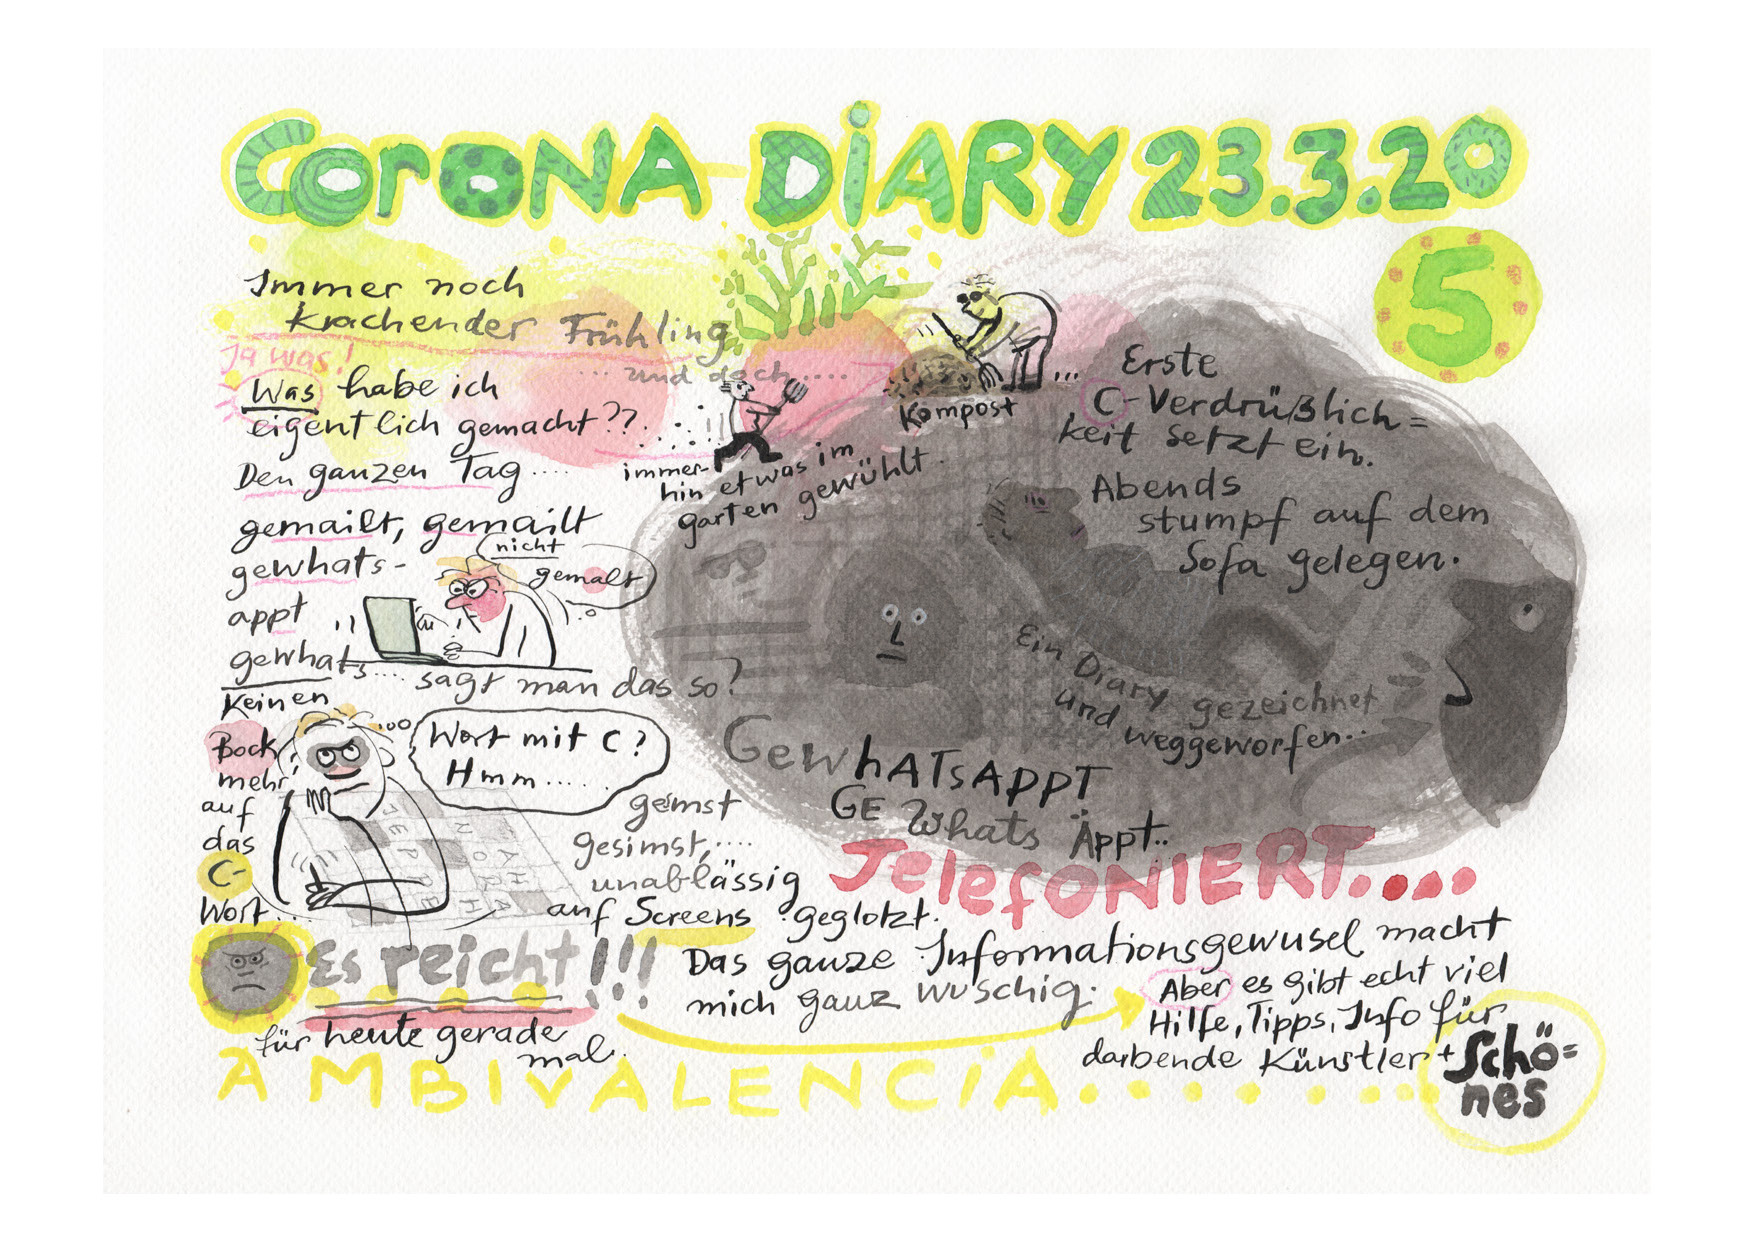 Corona-Diary 23.3.20
5
Immer noch
krachender Frühling
... und doch ....
Ja was!
Was habe ich
eigentlich gemacht??
Den ganzen Tag ....
gemailt, gemailt
gewhats-
appt
gewhats.... sagt man das so?
nicht
gemalt
immer-
hin etwas im
garten gewühlt.
Kompost
... Erste
C-Verdrüßlich=
keit setzt ein.
Abends
stumpf auf dem
Sofa gelegen.
Ein Diary gezeichnet
und weggeworfen..
Keinen
Bock
mehr
auf
das
C-
Wort....
Wort mit C?
Hmm.....
GewhATsAppT
GE Whats Äppt..
gesimst,....
unablässig
auf Screens geglotzt.
TelefONIERT....
Es reicht!!!
für heute gerade
mal.
Das ganze Informationsgewusel macht
mich ganz wuschig.
Aber es gibt echt viel
Hilfe, Tipps, Info für
darbende Künstler +
Schö=
nes
AMBIVALENCiA........